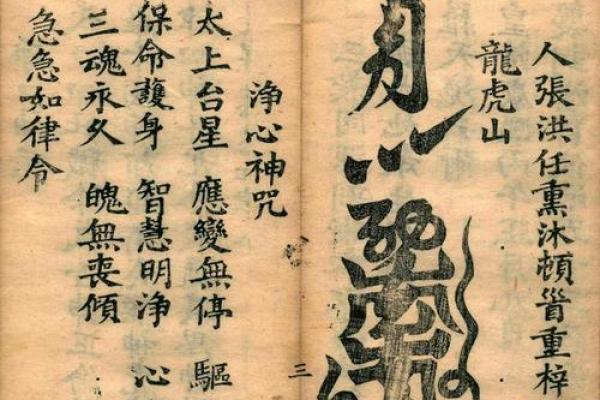 人張洪任熏沐頓首重梓
龍虎山
三
淨心神咒
太上台星 應變無停 驅
保命護身 智慧明淨 心
三魂永久 魄無喪傾
急急如律令